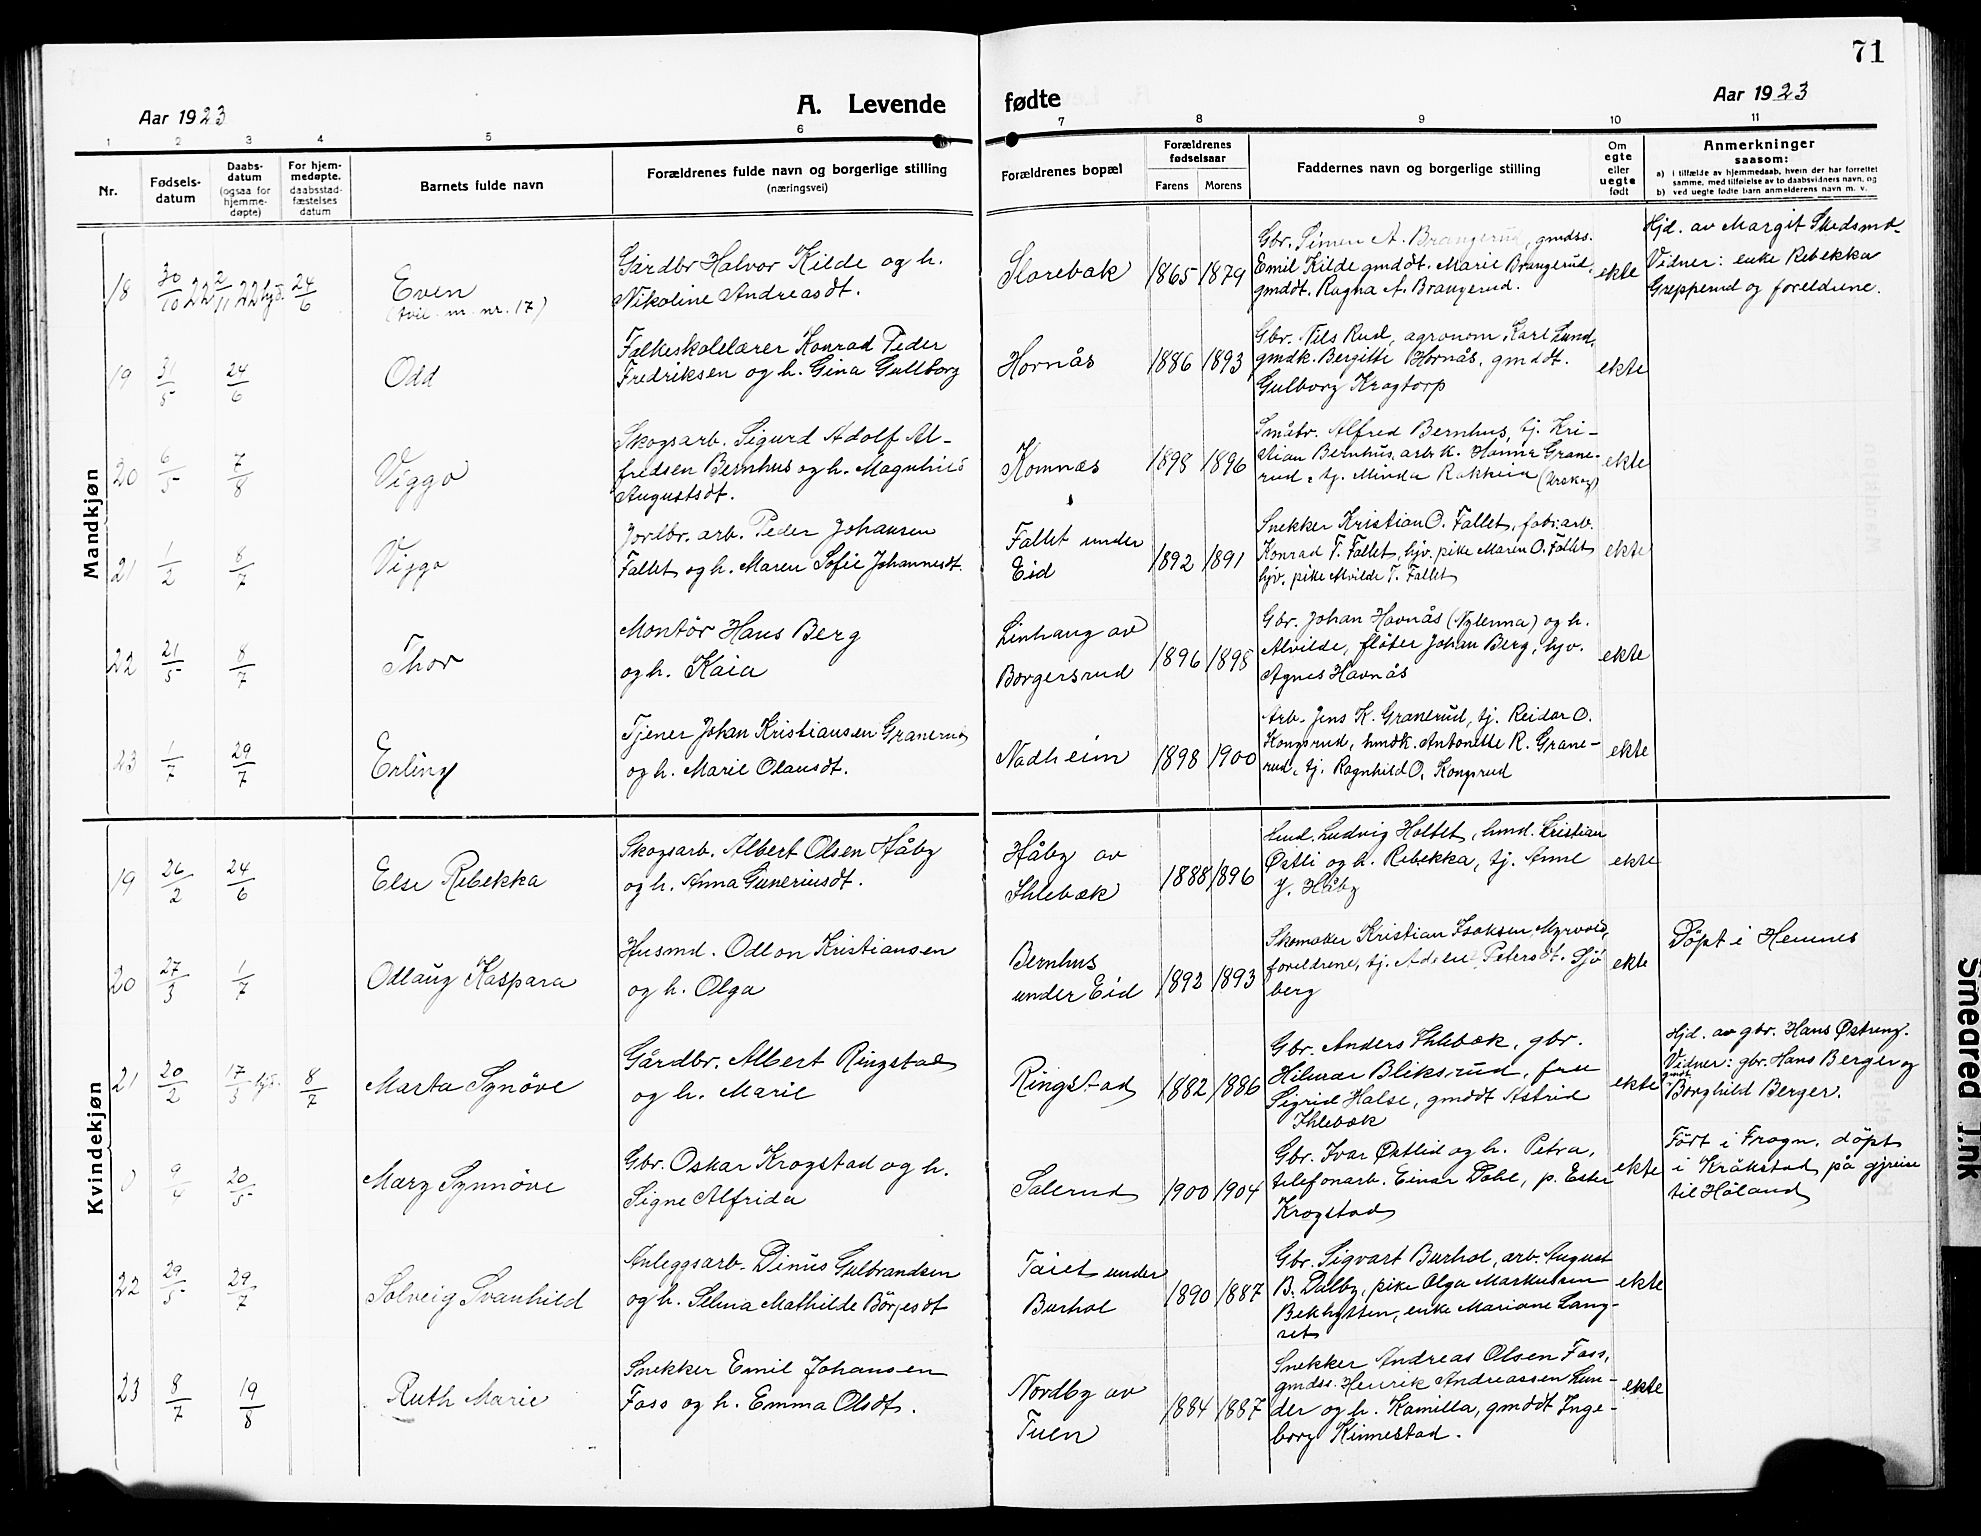 71
Aar 1923
A. Levende
fødte
Aar 1923
1 2 3 4 5 6 7 8 9 10 11
Nr.
Fødsels-
datum
Daabs-
datum
(ogsaa for
hjemme-
døpte)
For hjem-
medøpte.
daabsstad-
fæstelses
datum
Barnets fulde navn
Forældrenes fulde navn og borgerlige stilling
(næringsvei)
Forældrenes bopæl
Forældrenes
fødselsaar
Farens Morens
Faddernes navn og borgerlige stilling
Om
egte
eller
uegte
født
Anmerkninger
saasom:
a) i tilfælde av hjemmedaab, hvem der har forrettet
samme, med tilføielse av to daabsvidners navn, og
b) ved uegte fødte barn anmelderens navn m. v.
Mandkjøn
18 30/10 22 2/11 22 hjd. 24/6
Even
(tvil. m. nr. 17)
Gårdbr Halvor Kilde og h.
Nikoline Andreasdt.
Slorebak
1865 1879
Gbr. Simen A. Brangerud, gmdss.
Emil Kilde gmddt. Marie Brangerud,
gmddt. Ragna A. Brangerud.
ekte
Hjd. av Margit Skedsmo
Vidner: enke Rebekka
Grepperud og foreldrene.
19 31/5 24/6
Odd
Folkeskolelærer Konrad Peder
Fredriksen og h. Gina Gullborg
Hornås
1886 1893
Gbr. Nils Rud, agronom Karl Lund,
gmdk. Bergitte Hornås, gmddt.
Gulborg Krogtorp
ekte
20 6/5 7/8
Viggo
Skogsarb. Sigurd Adolf Al-
fredsen Bernhus og h. Magnhild
Augustsdt.
Komnæs
1898 1896
Småbr. Alfred Bernhus, tj. Kri-
stian Bernhus, arbk. Hanna Grane-
rud, tj. Minda Rakkeia (Urskog)
ekte
21 1/2 8/7
Viggo
Jordbr. arb. Peder Johansen
Fallet og h. Maren Sofie Johannesdt.
Fallet under
Eid
1892 1891
Snekker Kristian O. Fallet, fabr. arb.
Konrad T. Fallet, hjv. pike Maren O. Fallet
hjv. pike Alvilde T. Fallet
ekte
22 21/5 8/7
Thor
Montör Hans Berg
og h. Kaia
Linhaug av
Borgersrud
1896 1895
Gbr. Johan Havnås (Nylenna) og h.
Alvilde, fløter Johan Berg, hjv.
Agnes Havnås
ekte
23 1/7 29/7
Erling
Tjener Johan Kristiansen Granerud
og h. Marie Olausdt.
Nadheim
1898 1900
Arb. Jens K. Granerud, tj. Reidar O.
Kongsrud, hmdk. Antonette R. Grane-
rud, tj. Ragnhild O. Kongsrud
ekte
Kvindekjøn
19 26/2 24/6
Else Rebekka
Skogsarb. Albert Olsen Håby
og h. Anna Guneriusdt.
Håby av
Ihlebæk
1888 1896
Hmd. Ludvig Holtet, hmd. Kristian
Østli og h. Rebekka, tj. Anne
J. Håby
ekte
20 27/3 1/7
Odlaug Kaspara
Husmd. Odlon Kristiansen
og h. Olga
Bernhus
under Eid
1892 1893
Skomaker Kristian Isaksen Myrvold,
foreldrene, tj. Adele Petersdt. Sjö
berg
ekte
Döpt i Hemnes
21 20/2 17/3 hjd. 8/7
Marta Synöve
Gårdbr. Albert Ringstad
og h. Marie
Ringstad
1882 1886
Gbr. Anders Ihlebæk, gbr.
Hilmar Bliksrud, fru
Sigrid Halse, gmddt Astrid
Ihlebæk
ekte
Hjd. av gbr. Hans Østreng.
Vidner: gbr. Hans Berger og
gmdt.
Borghild Berger.
0 9/4 20/5
Mary Synnöve
Gbr. Oskar Krogstad og h.
Signe Alfrida
Salerud
1900 1904
Gbr. Ivar Østlid og h. Petra,
telefonarb. Einar Dahl, p. Ester
Krogstad
ekte
Fört i Frogn, döpt
i Kråkstad på gjreise
til Höland
22 29/5 29/7
Solveig Svanhild
Anleggsarb. Dinus Gulbrandsen
og h. Selma Mathilde Börjesdt
Taiet under
Burhol
1890 1887
Gbr. Sigvart Burhol, arb. August
B. Dalby, pike Olga Markussen
Bekhytten, enke Mariane Lang-
set
ekte
23 8/7 19/8
Ruth Marie
Snekker Emil Johansen
Foss og h. Emma Olsdt.
Nordby av
Tuen
1884 1887
Snekker Andreas Olsen Foss,
gmdss. Henrik Andreassen Lun-
der og h. Kamilla, gmddt Inge-
borg Kinnestad.
ekte
Smeared Ink